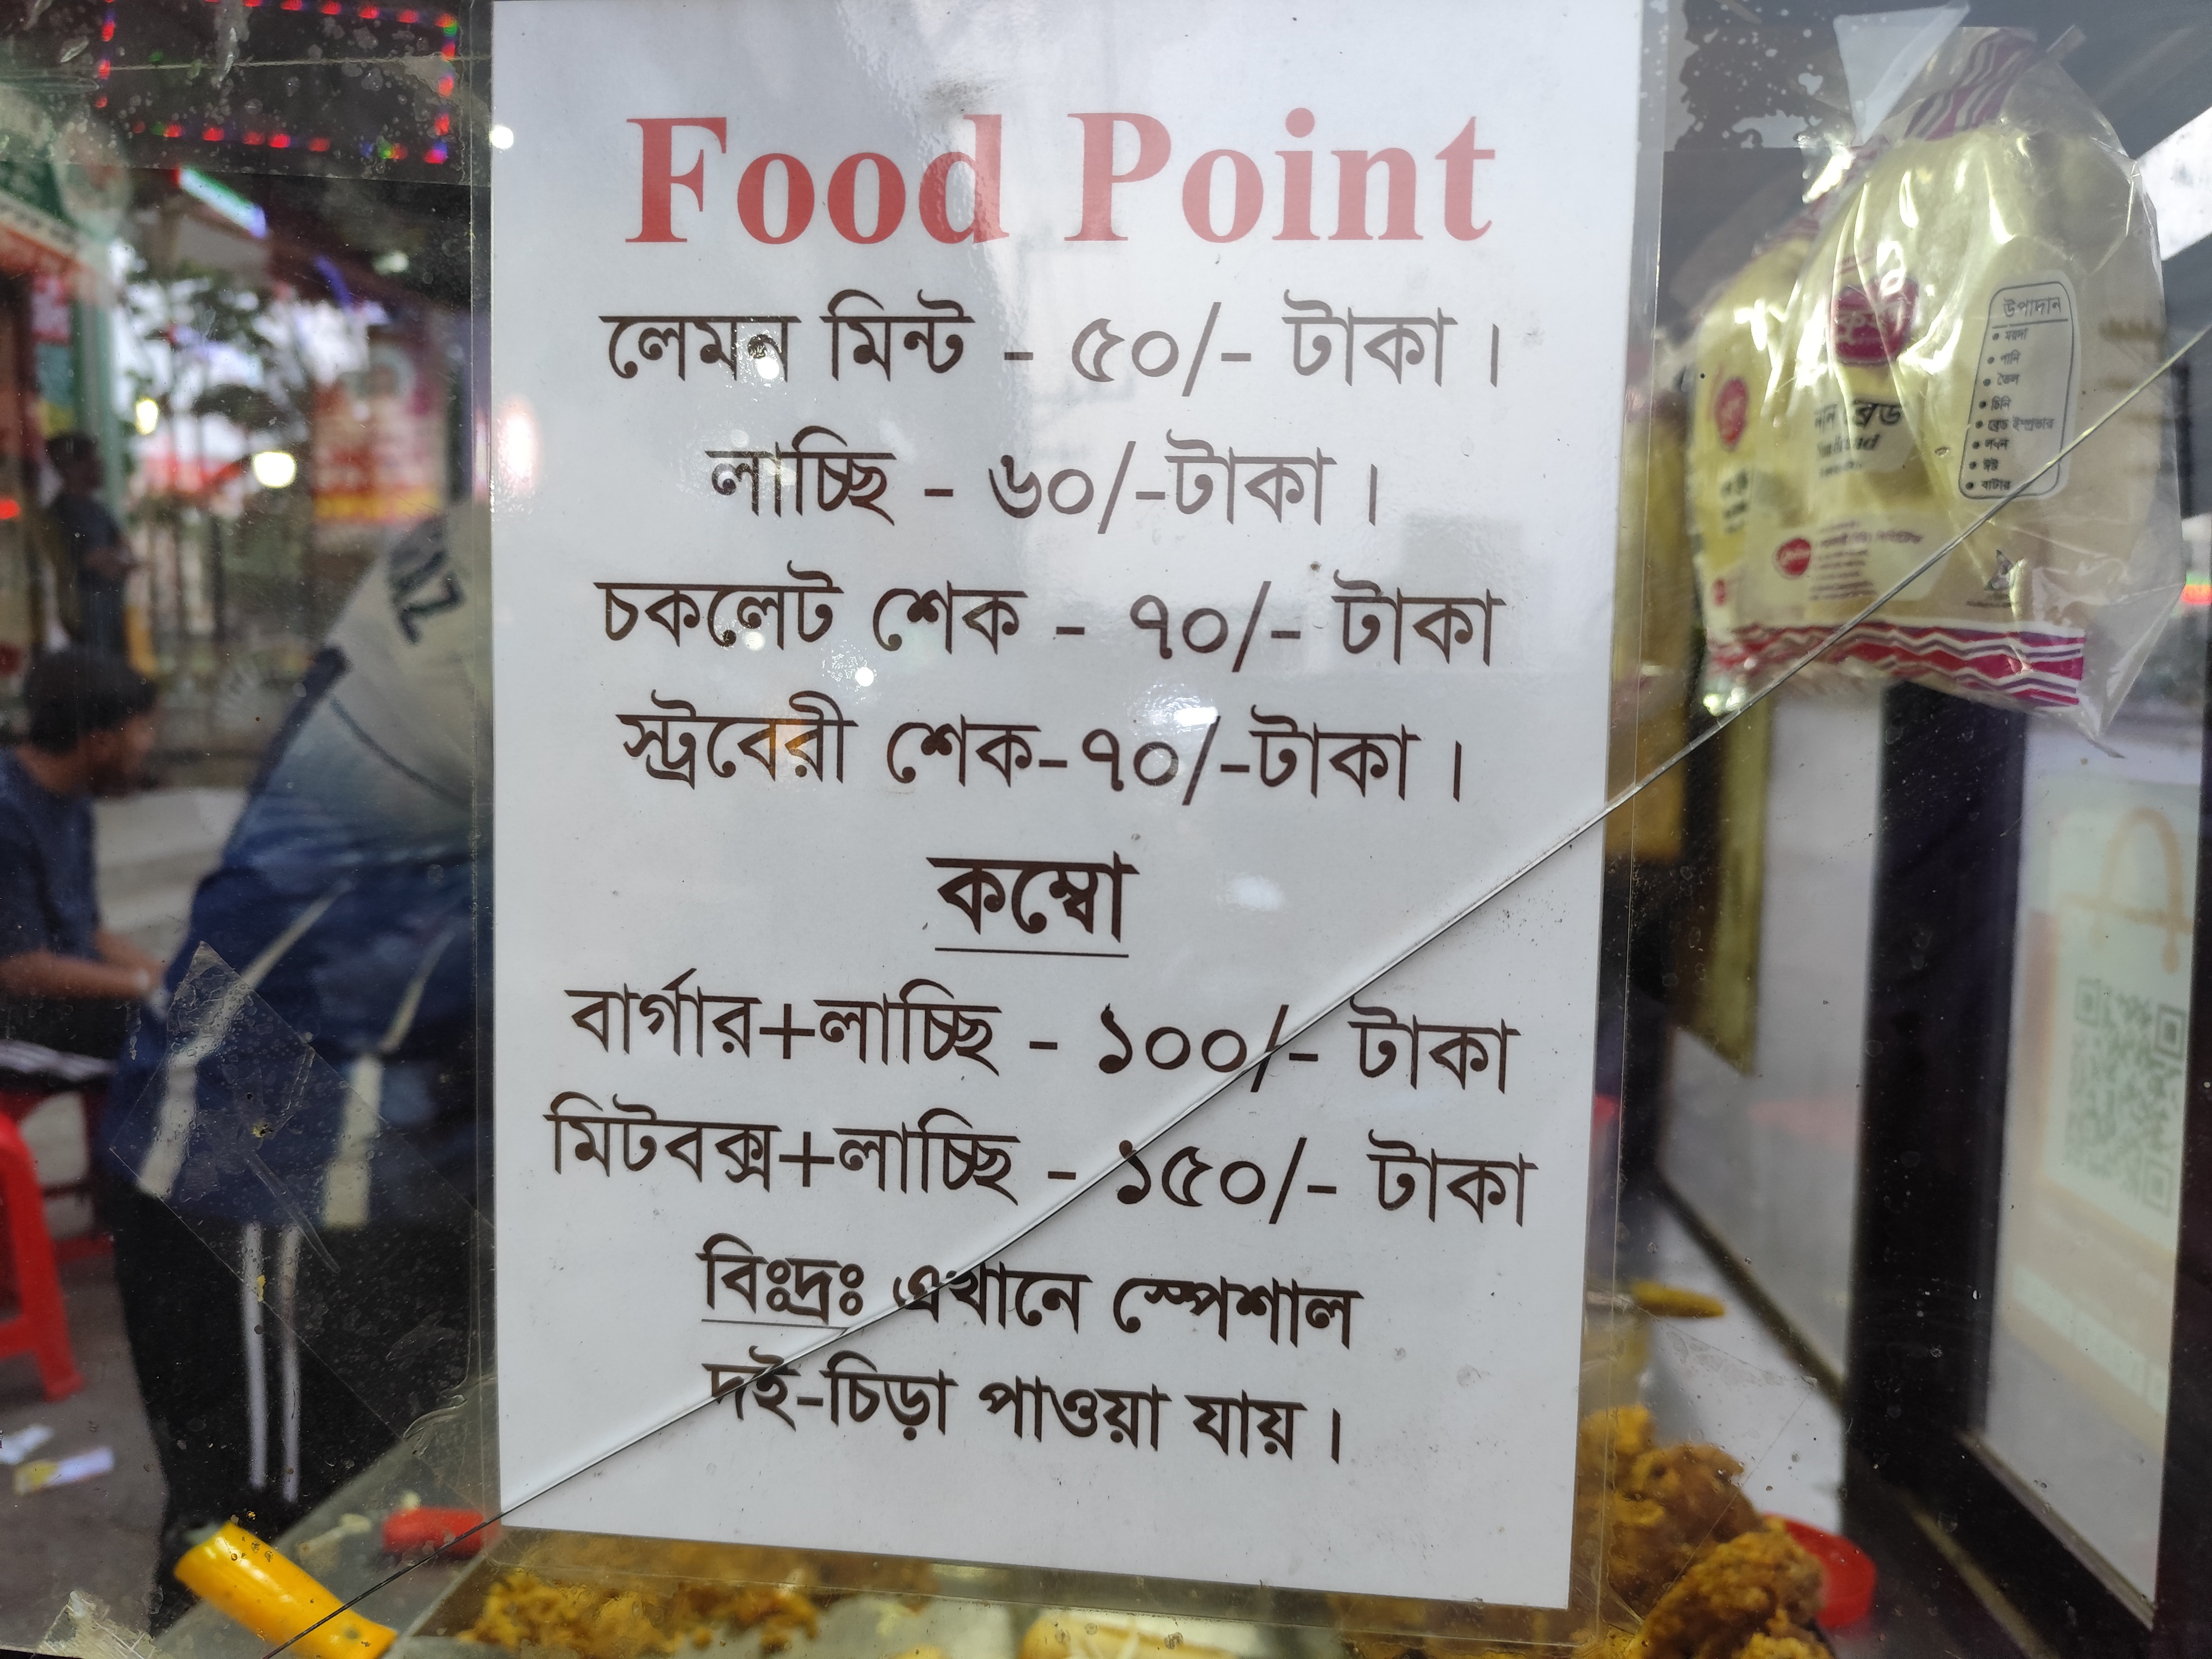 Food Point
লেমন মিন্ট - ৫০/- টাকা ।
লাচ্ছি - ৬০/-টাকা ।
চকলেট শেক - ৭০/- টাকা
স্ট্রবেরী শেক-৭০/-টাকা ।
কম্বো
বার্গার+লাচ্ছি - ১০০/- টাকা
মিটবক্স+লাচ্ছি - ১৫০/- টাকা
বিঃদ্রঃ এখানে স্পেশাল
দই-চিড়া পাওয়া যায় ।
উপাদান
• ময়দা
• পানি
• তৈল
• চিনি
• ব্রেড ইম্প্রুভার
• লবন
• ইস্ট
• বাটার
নান ব্রেড